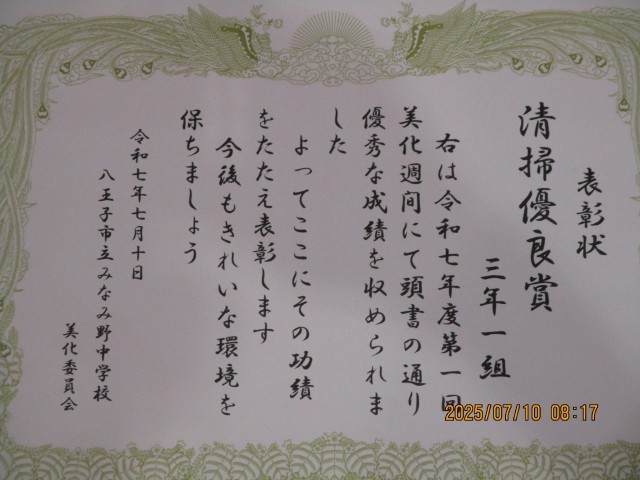 表彰状
清掃優良賞
三年一組
右は令和七年度第一回
美化週間にて頭書の通り
優秀な成績を収められま
した
よってここにその功績
をたたえ表彰します
今後もきれいな環境を
保ちましょう
令和七年七月十日
八王子市立みなみ野中学校
美化委員会
2025/07/10 08:17